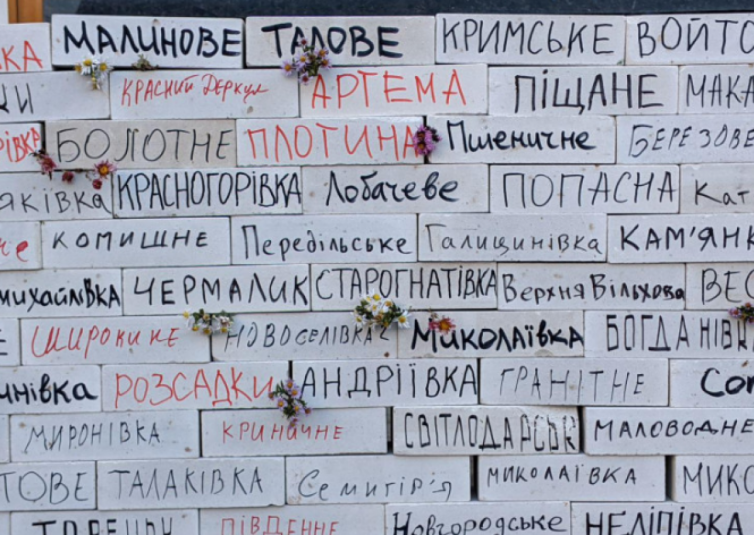 МАЛИНОВЕ ТАЛОВЕ КРИМСЬКЕ
КРАСНИЙ ДЕРКУЛ АРТЕМА ПІЩАНЕ
БОЛОТНЕ ПЛОТИНА Пшеничне БЕРЕЗОВЕ
КРАСНОГОРІВКА Лобачеве ПОПАСНА
КОМИШНЕ Передільське Галицинівка КАМ'ЯНК
михайлівка ЧЕРМАЛИК СТАРОГНАТІВКА Верхня Вільхова
ШИРОКИНЕ НОВОСЕЛІВКА Миколаївка БОГДАНІВК
РОЗСАДКИ АНДРІЇВКА ГРАНІТНЕ
МИРОНІВКА КРИНИЧНЕ СВІТЛОДАРСЬК МАЛОВОДНЕ
ТОВЕ ТАЛАКІВКА Семигір'я МИКОЛАЇВКА МИКО
ПІВДЕННЕ Новгородське НЕЛІПІВКА